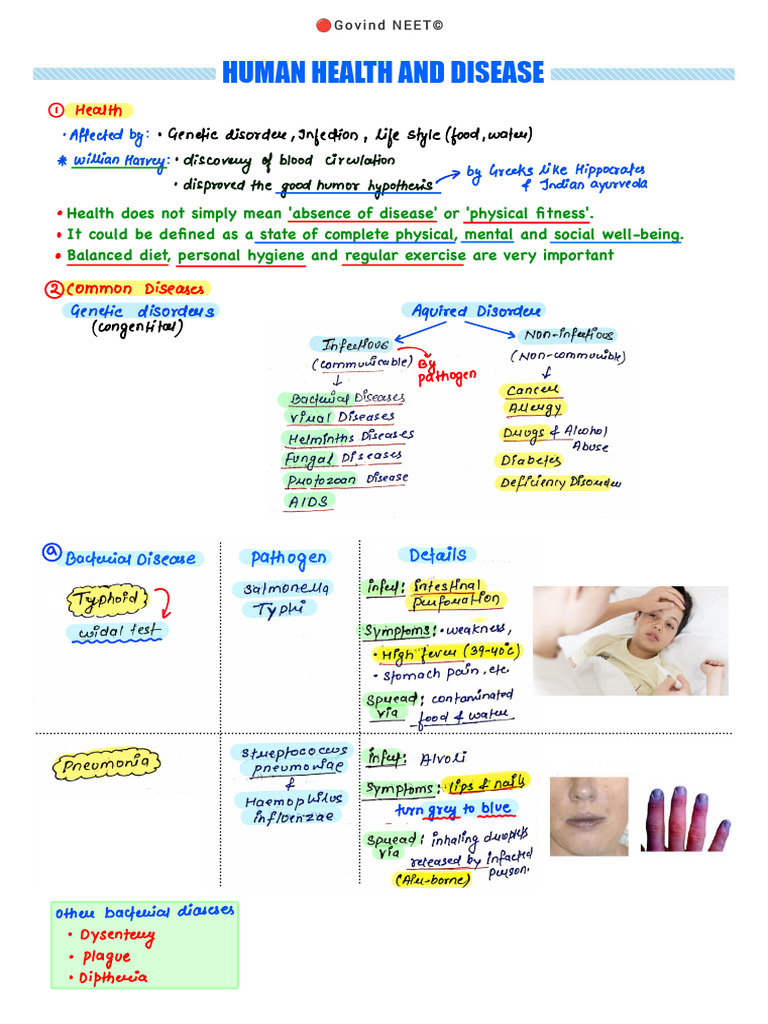 Govind NEET©
HUMAN HEALTH AND DISEASE
① Health
• Affected by: • Genetic disorder, Infection, Life style (food, water)
* Willian Harvey: • discovery of blood circulation
• disproved the good humor hypothesis
by Greeks like Hippocrates
& Indian ayurveda
• Health does not simply mean 'absence of disease' or 'physical fitness'.
• It could be defined as a state of complete physical, mental and social well-being.
• Balanced diet, personal hygiene and regular exercise are very important
② Common Diseases
Genetic disorders
(congenital)
Aquired Disorder
Infectious
(communicable)
By pathogen
Bacterial Diseases
Viral Diseases
Helminths Diseases
Fungal Diseases
Protozoan Disease
AIDS
Non-infectious
(Non-communible)
Cancer
Allergy
Drugs & Alcohol
Abuse
Diabetes
Deficiency Disorder
ⓐ Bacterial Disease
Pathogen
Details
Typhoid
widal test
Salmonella
Typhi
infect: intestinal
perforation
Symptoms: • weakness,
• High fever (39-40°c)
• stomach pain, etc
Spread via: contaminated
food & water
Pneumonia
Streptococus
pneumoniae
&
Haemophilus
influenzae
infect: Alvoli
Symptoms: lips & nails
turn grey to blue
Spread via: inhaling droplets
released by infected
person.
(Air-borne)
Other bacterial diaseses
• Dysentery
• Plague
• Diptheria